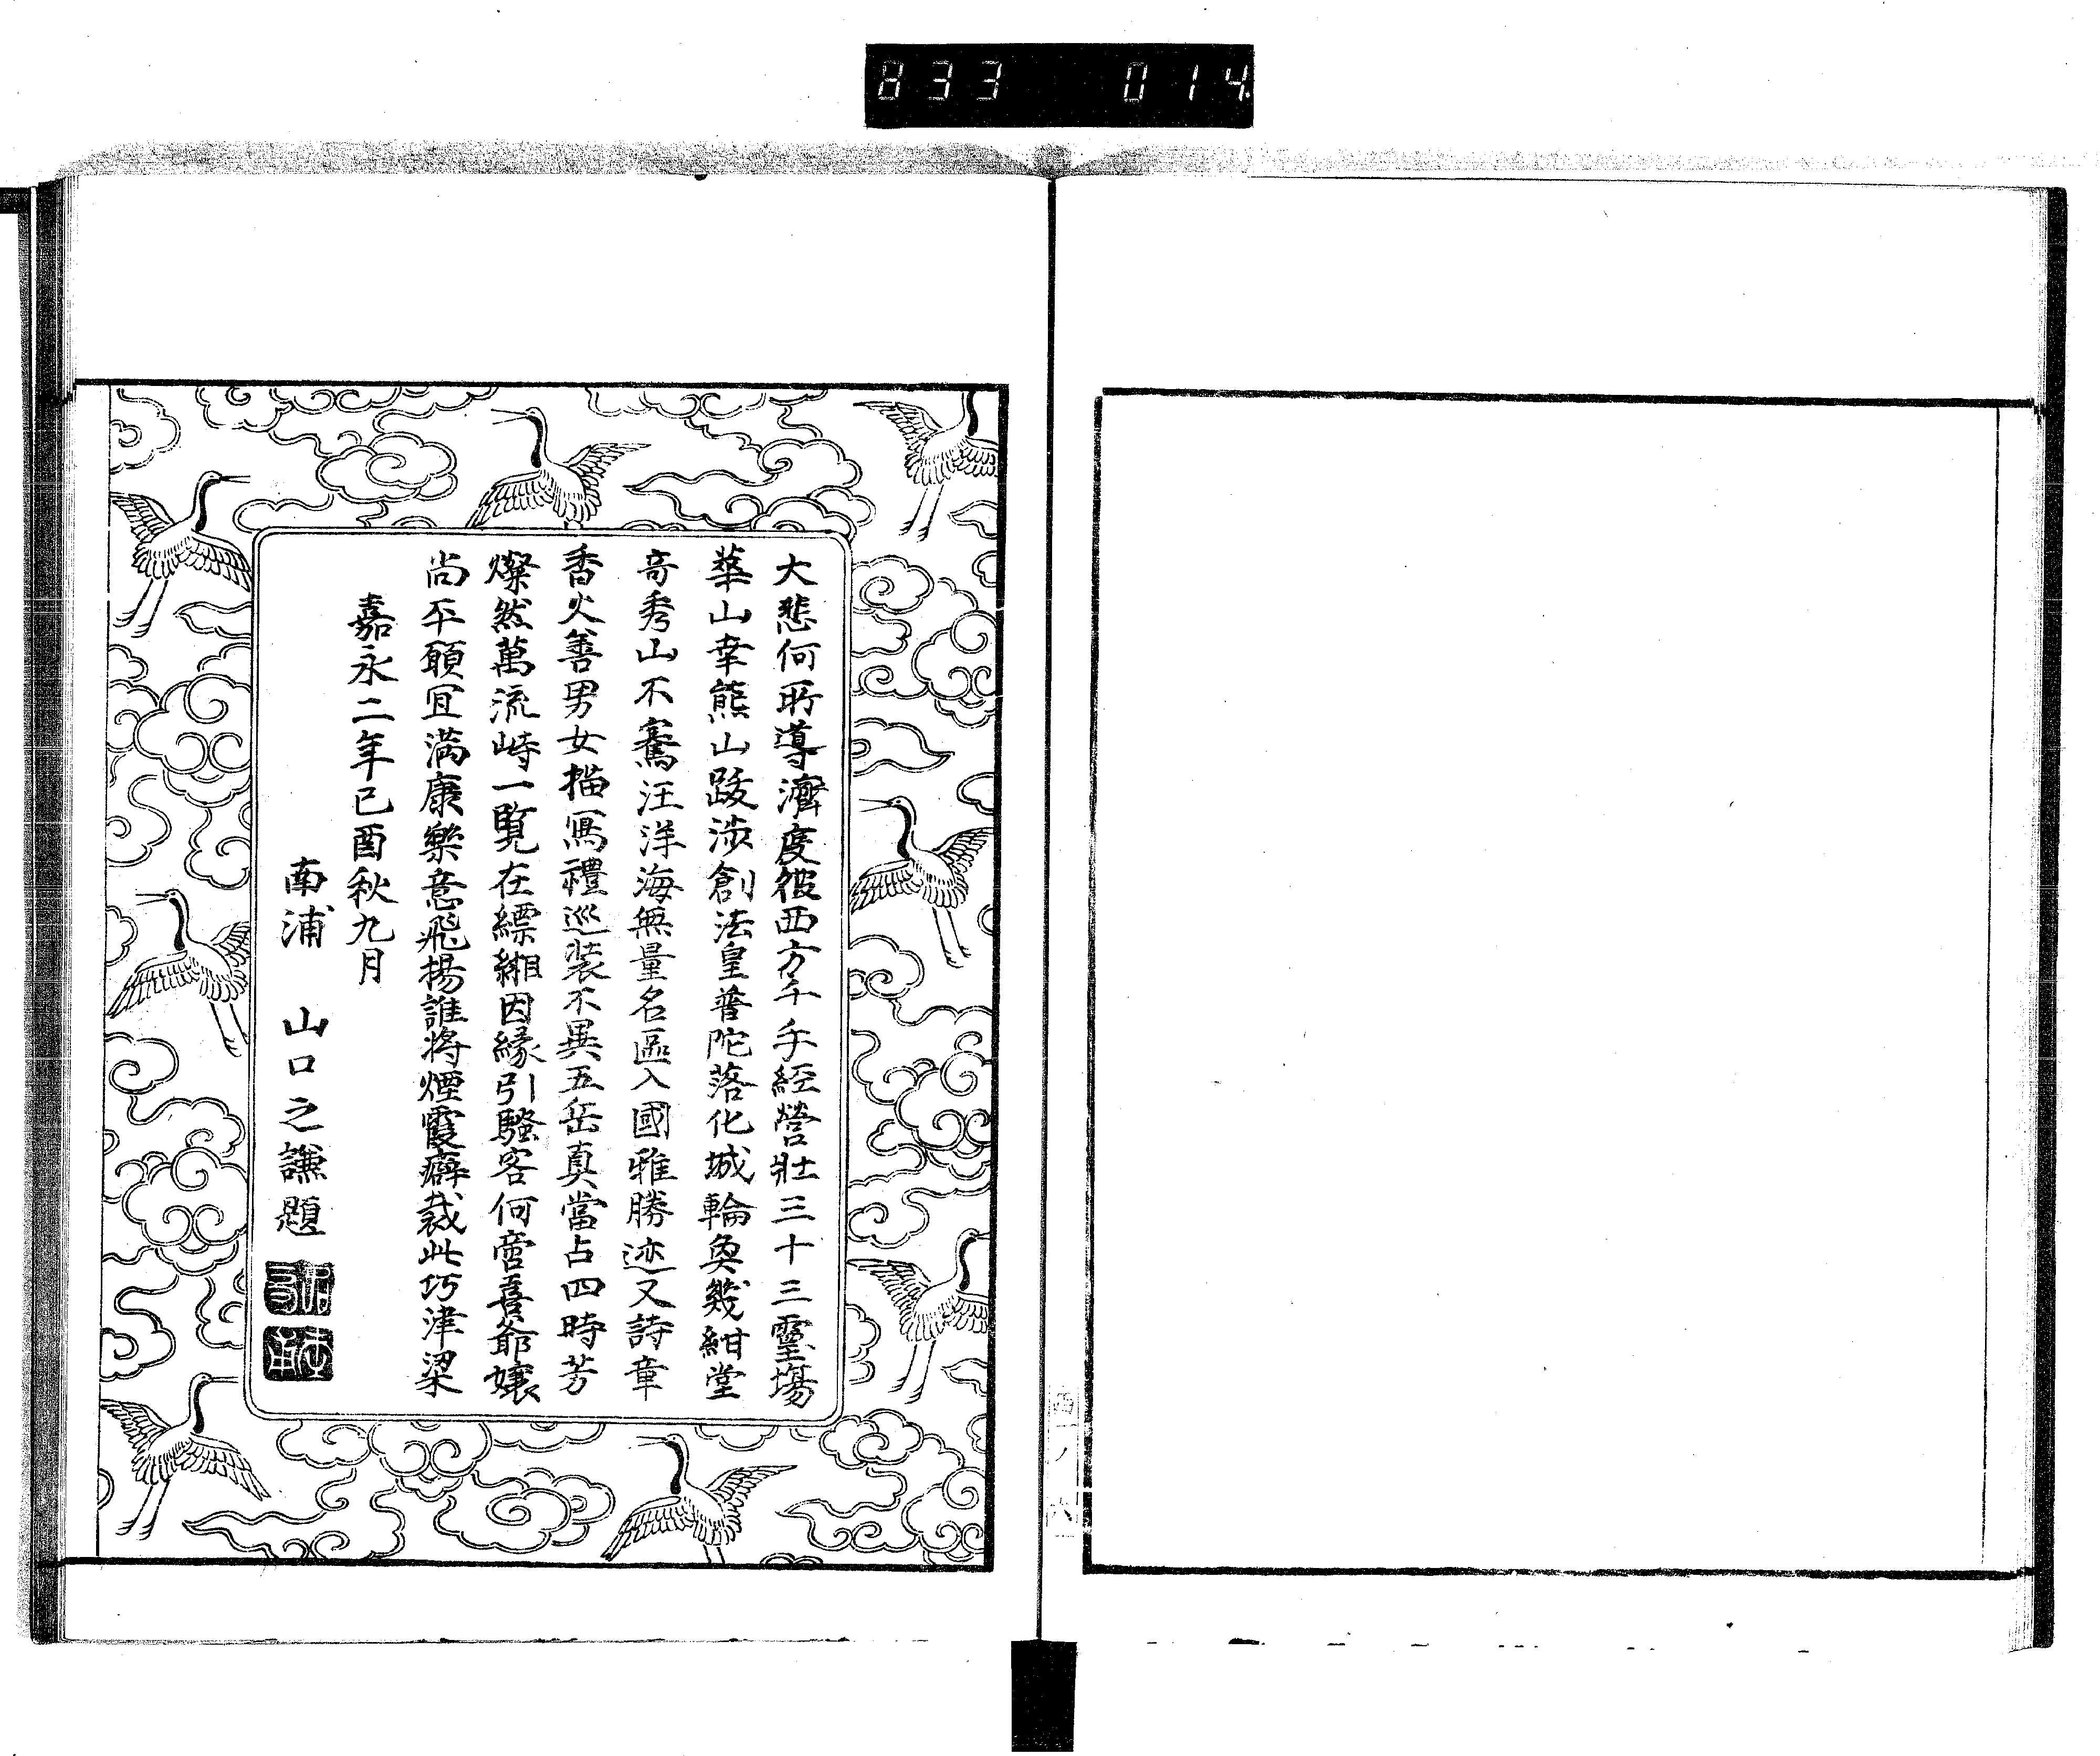 833 014
大悲何所導濟度彼西方千手經營壯三十三靈場
華山幸熊山跋渉創法皇普陀落化城輪奐幾紺堂
奇秀山不騫汪洋海無量名區入國雅勝迹又詩章
香火善男女描寫禮巡装不異五岳真當占四時芳
燦然萬流峙一覧在縹緗因縁引騷客何啻喜爺孃
尚平願宜満康樂意飛揚誰將煙霞癖裁此巧津梁
嘉永二年已酉秋九月
南浦 山口之謙題
西一ノ六